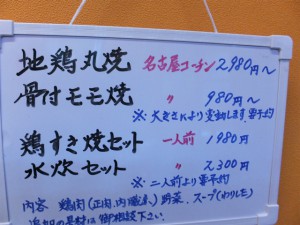 地鶏丸焼 名古屋コーチン 2980円～
骨付モモ焼 〃 980円～
※大きさにより変動します 要予約
鶏すき焼セット 一人前 1980円
水炊セット 〃 2,300円
※二人前より要予約
内容 鶏肉(正肉、内臓系) 野菜、スープ(わりした)
追加の具材は御相談下さい